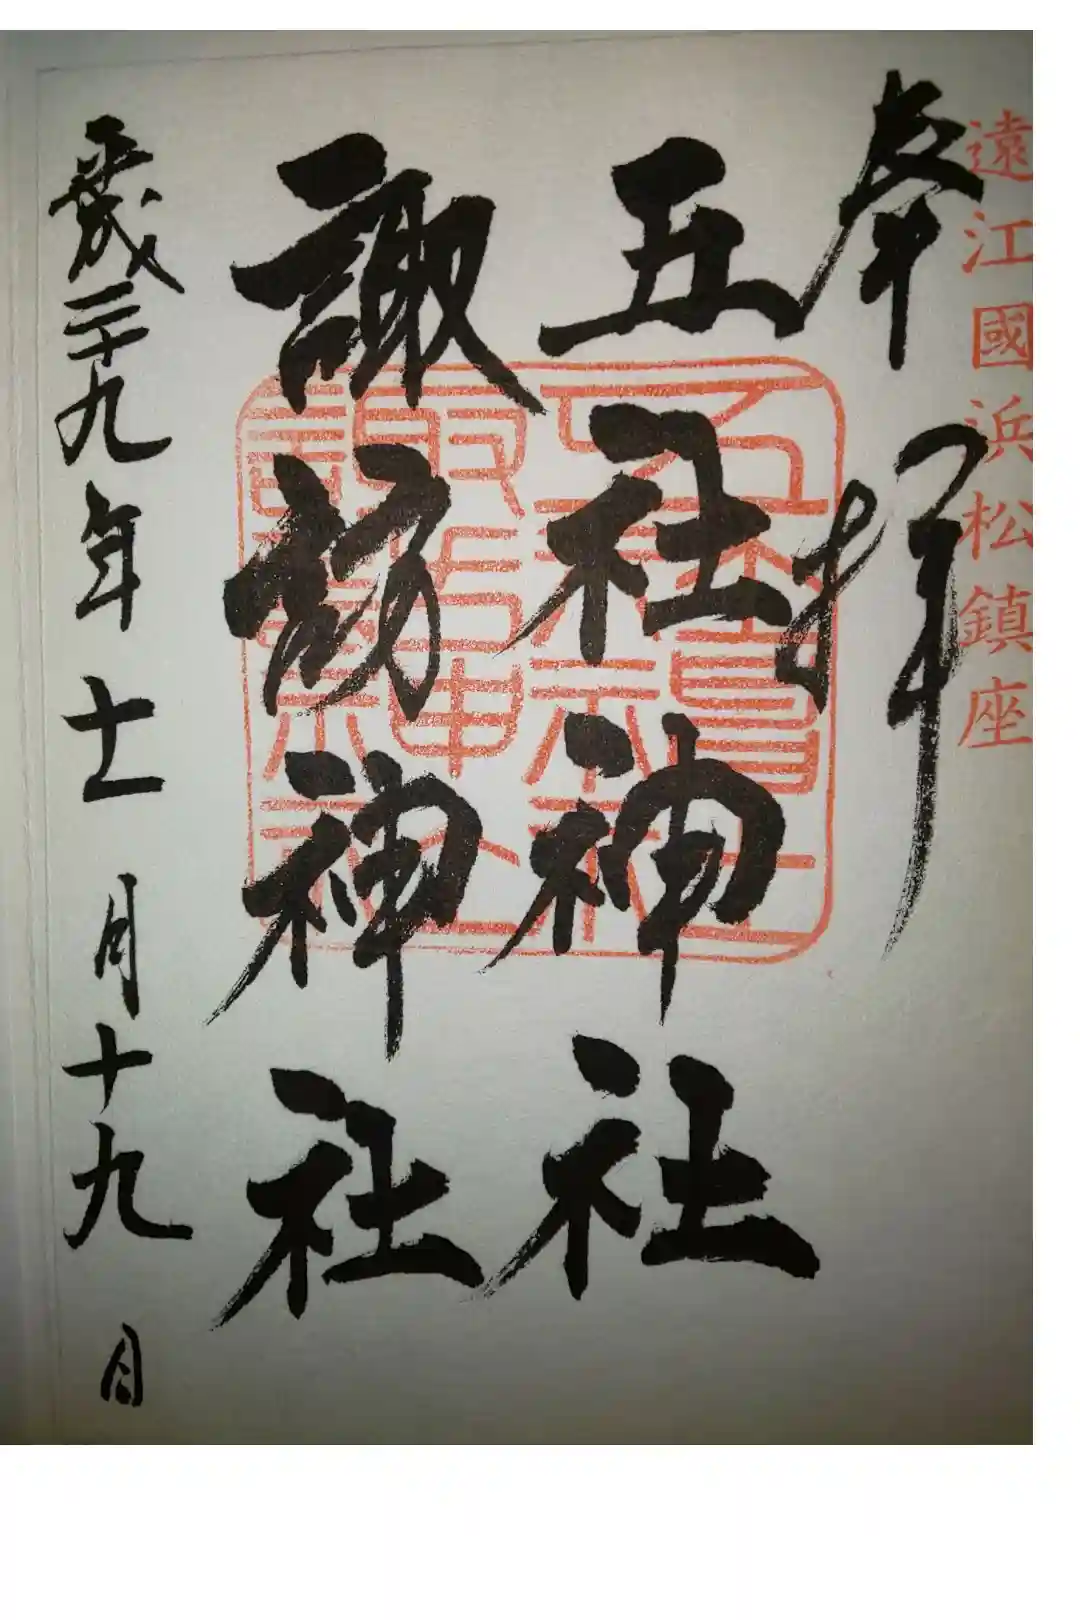 遠江國浜松鎮座
奉拝
五社神社
諏訪神社
平成二十九年十二月十九日